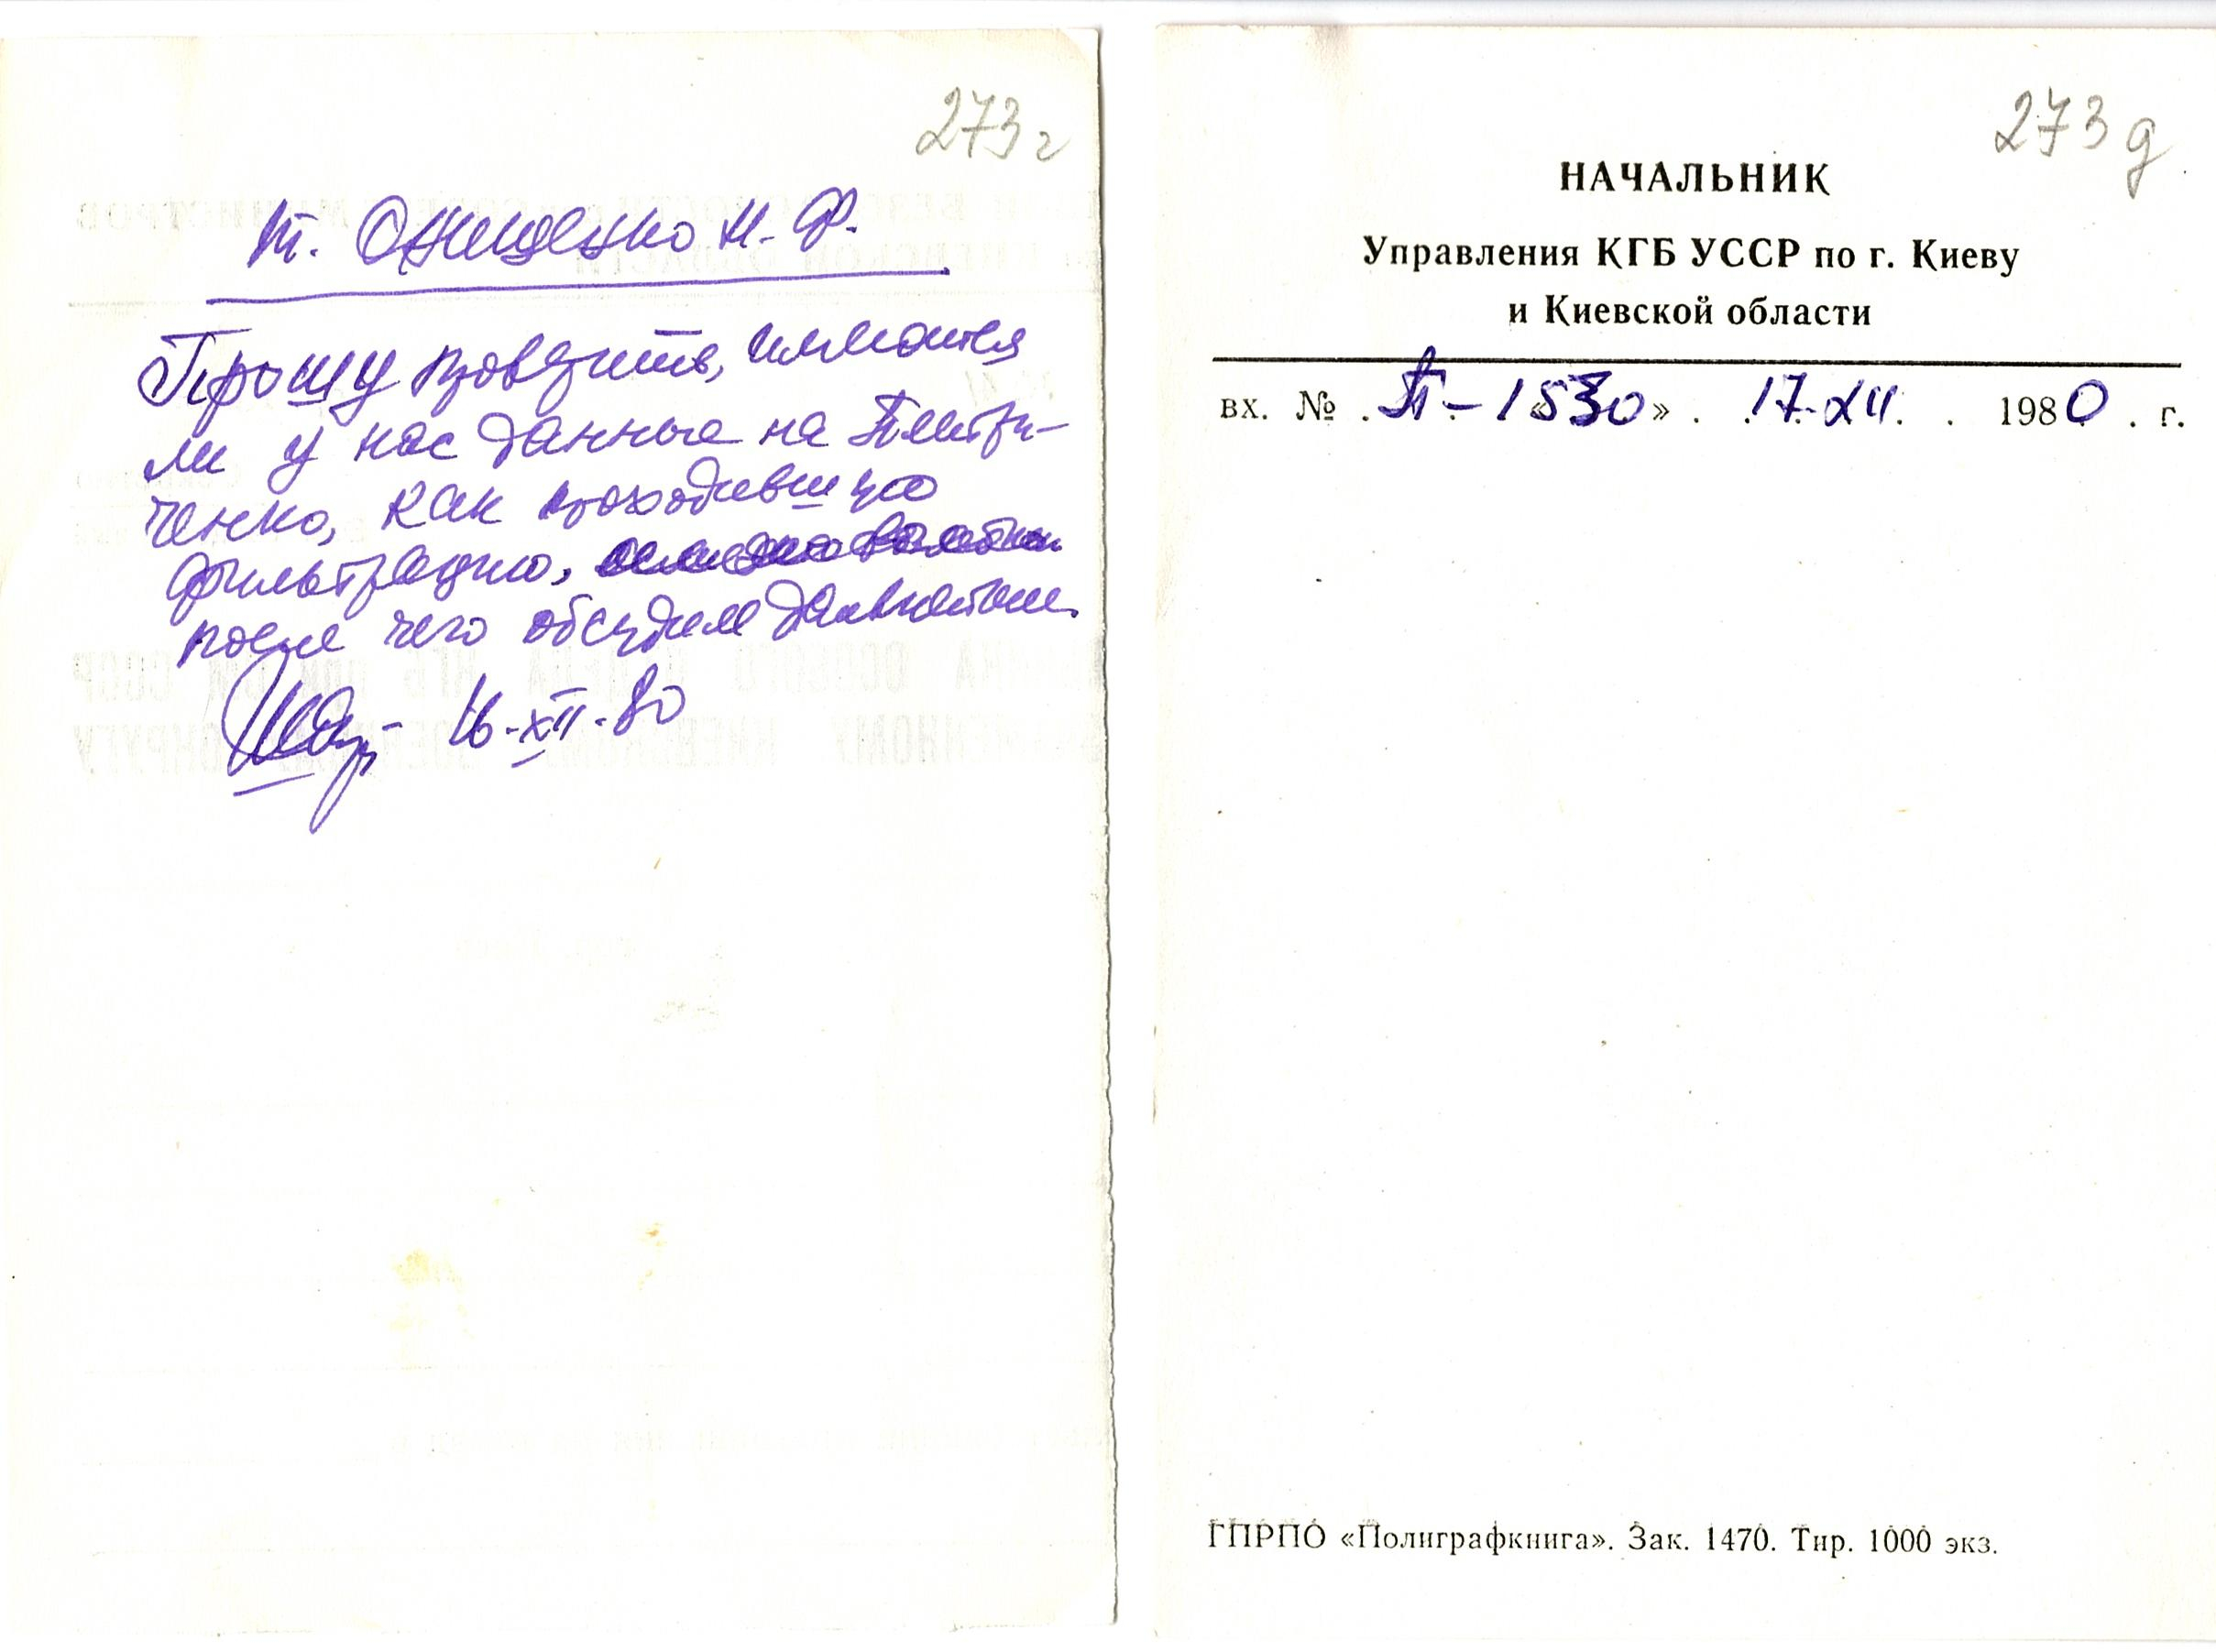 273 г
т. Онищенко Н. Ф.
Прошу проверить, имеются
ли у нас данные на
как проходившую
фильтрацию,
после чего обсудим
16-XII-80
273 д
НАЧАЛЬНИК
Управления КГБ УССР по г. Киеву
и Киевской области
вх. № П-1530 » 17.XII. 1980 . г.
ГПРПО «Полиграфкнига». Зак. 1470. Тир. 1000 экз.